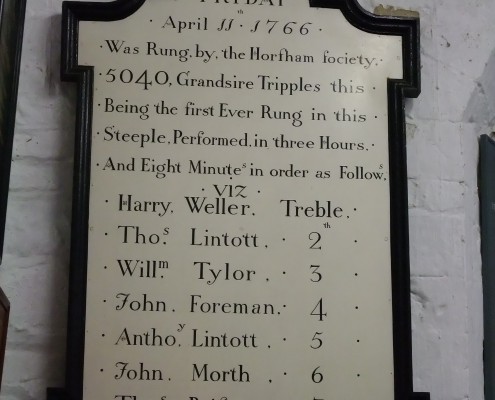 FRYDAY
April 11th 1766
Was Rung, by, the Horſham ſociety,
5040, Grandsire Tripples this
Being the first Ever Rung in this
Steeple, Performed, in three Hours,
And Eight Minutes in order as Follows,
VIZ
Harry, Weller, Treble,
Thos. Lintott, 2th
Willm. Tylor, 3
John, Foreman, 4
Anthoy. Lintott, 5
John, Morth, 6